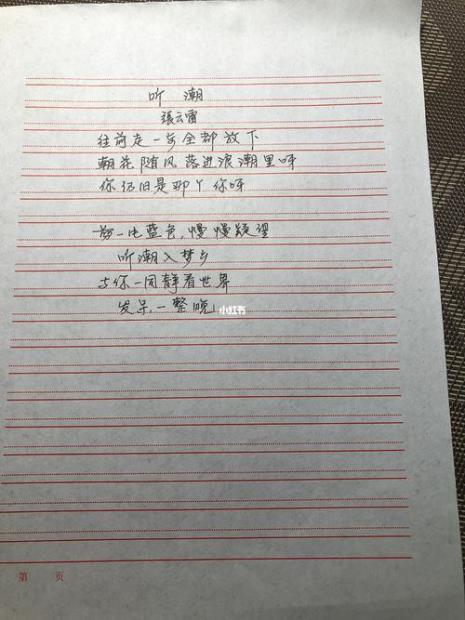 听 潮
張云雷
往前走一步全都放下
朝花随风落进浪潮里呀
你仍旧是那个你呀
一 蓝色,慢慢
听潮入梦乡
与你一同静看世界
发呆,一整晚
小红书
第 页